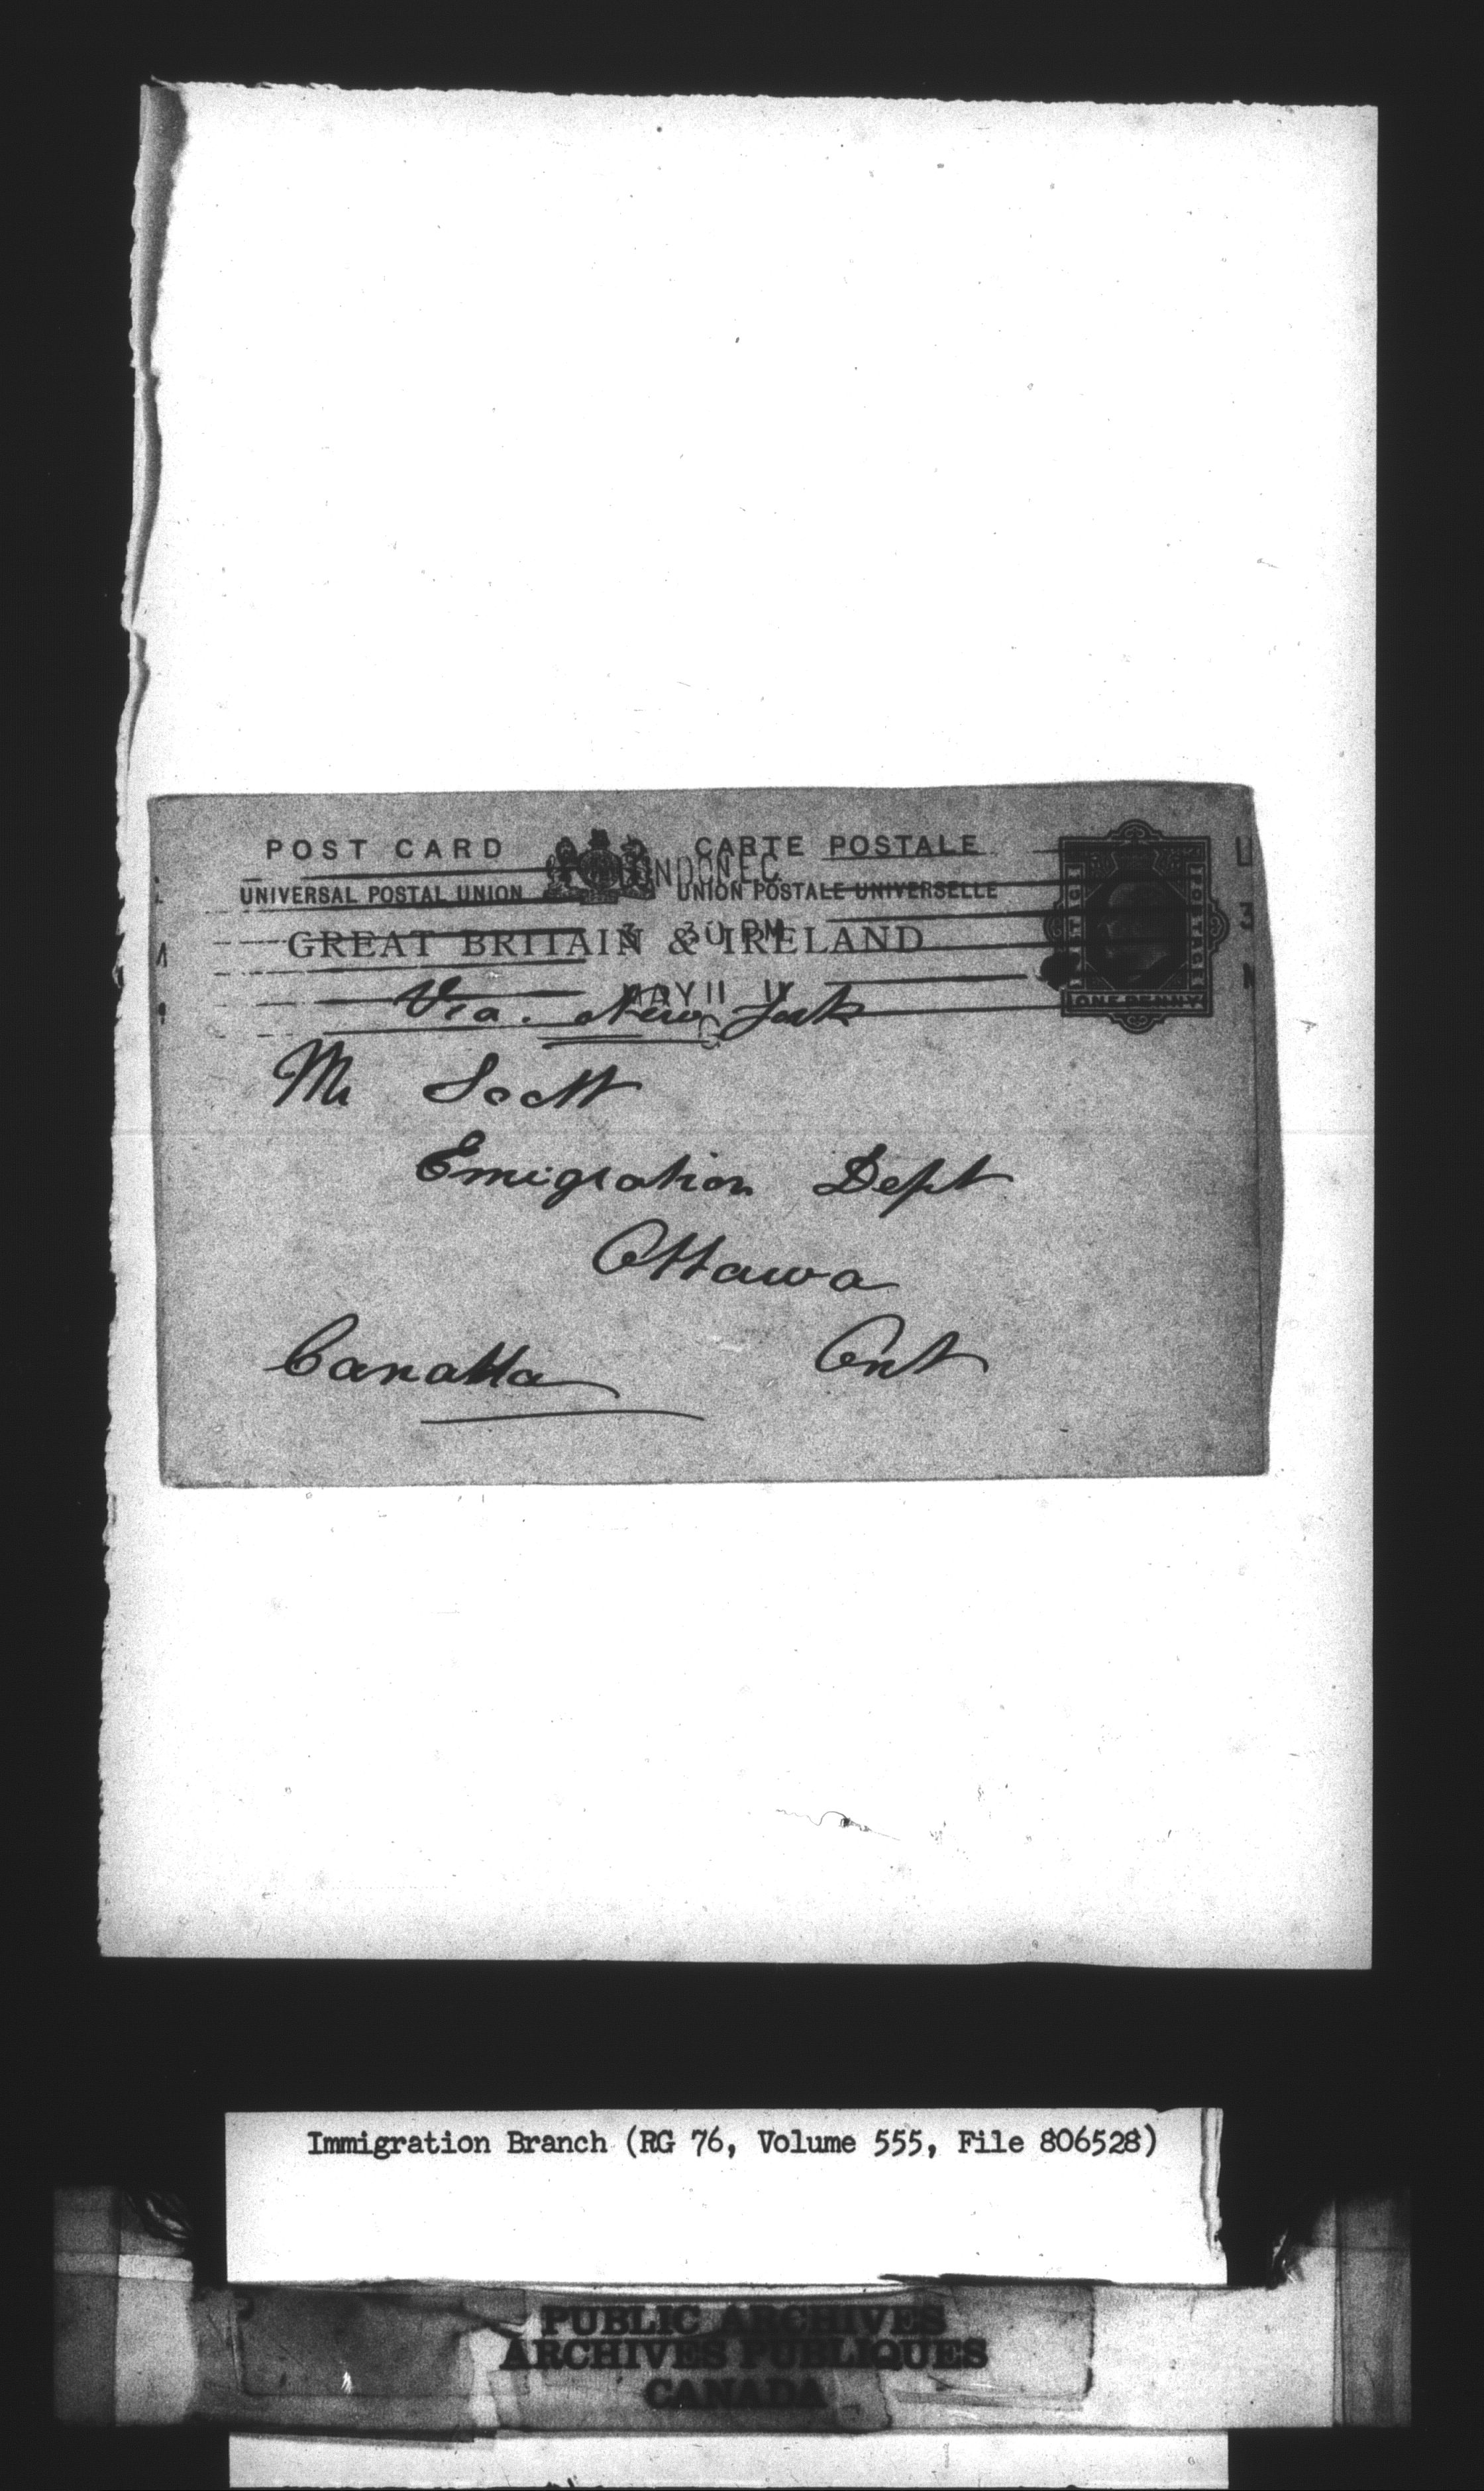 POST CARD
CARTE POSTALE
LONDON E.C.
UNIVERSAL POSTAL UNION
UNION POSTALE UNIVERSELLE
3 30 PM
GREAT BRITAIN & IRELAND
MAY 11
POSTAGE
POSTAGE
ONE PENNY
Via. New York
Mr Scott
Emigration Dept
Ottawa
Canada Ont
Immigration Branch (RG 76, Volume 555, File 806528)
PUBLIC ARCHIVES
ARCHIVES PUBLIQUES
CANADA